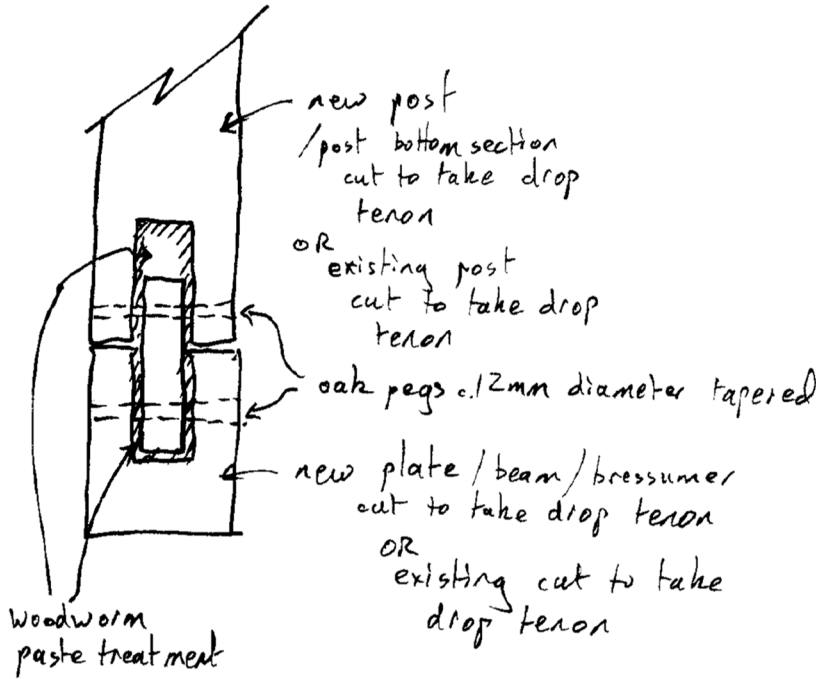 new post
/post bottom section
cut to take drop
tenon
OR
existing post
cut to take drop
tenon
oak pegs c.12mm diameter tapered
new plate/beam/bressumer
cut to take drop tenon
OR
existing cut to take
drop tenon
woodworm
paste treatment